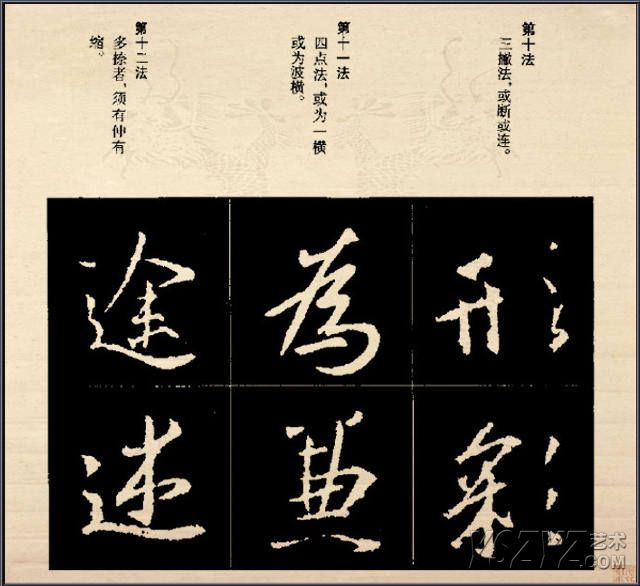 第十法
三撇法，或断或连。
第十一法
四点法，或为一横
或为波横。
第十二法
多捺者，须有伸有
缩。
形
彩
為
典
途
述
YSZYZ艺术
.COM